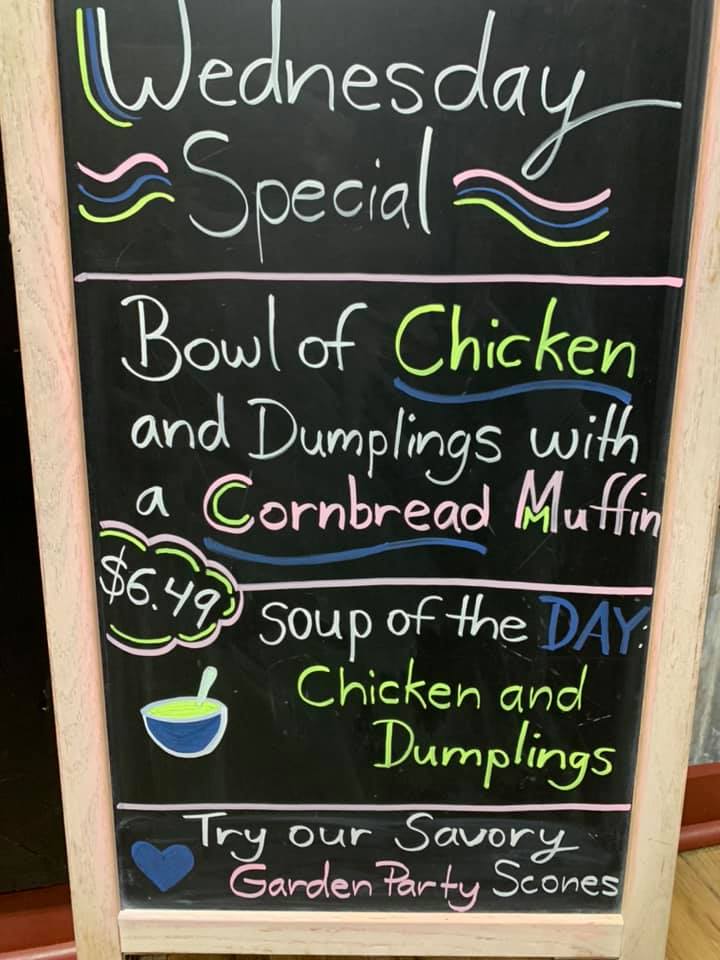 Wednesday
Special
Bowl of Chicken
and Dumplings with
a Cornbread Muffin
$6.49
Soup of the DAY:
Chicken and
Dumplings
Try our Savory
Garden Party Scones